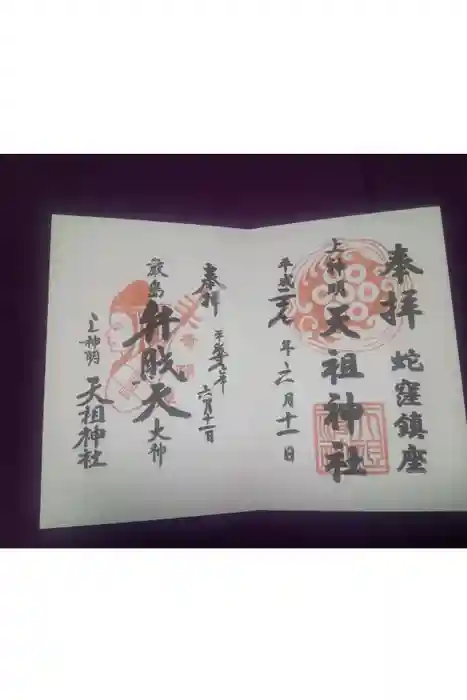 奉拝 蛇窪鎮座
上神明 天祖神社
平成二十九年六月十一日
奉拝
平成二十九年 六月十一日
厳島 弁財天 大神
上神明 天祖神社